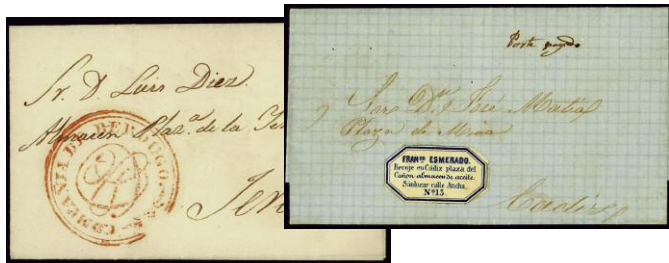 Sr. D. Luis Diez
Almacen Plaz.ª de la
COMPAÑIA DE
Porte pagado
Plaza de Mina
FRAN.co ESMERADO.
Recoje en Cádiz plaza del
Cañon almacen de aceite.
Sanlucar calle Ancha,
Nº 15.
Cadiz